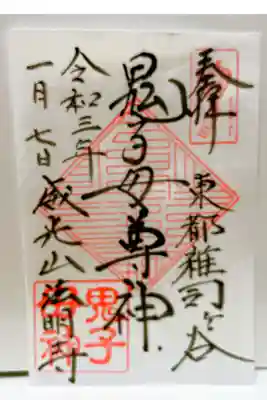 奉拝
東都雑司ヶ谷
鬼子母尊神
令和三年
一月七日
威光山法明寺
鬼子
母神